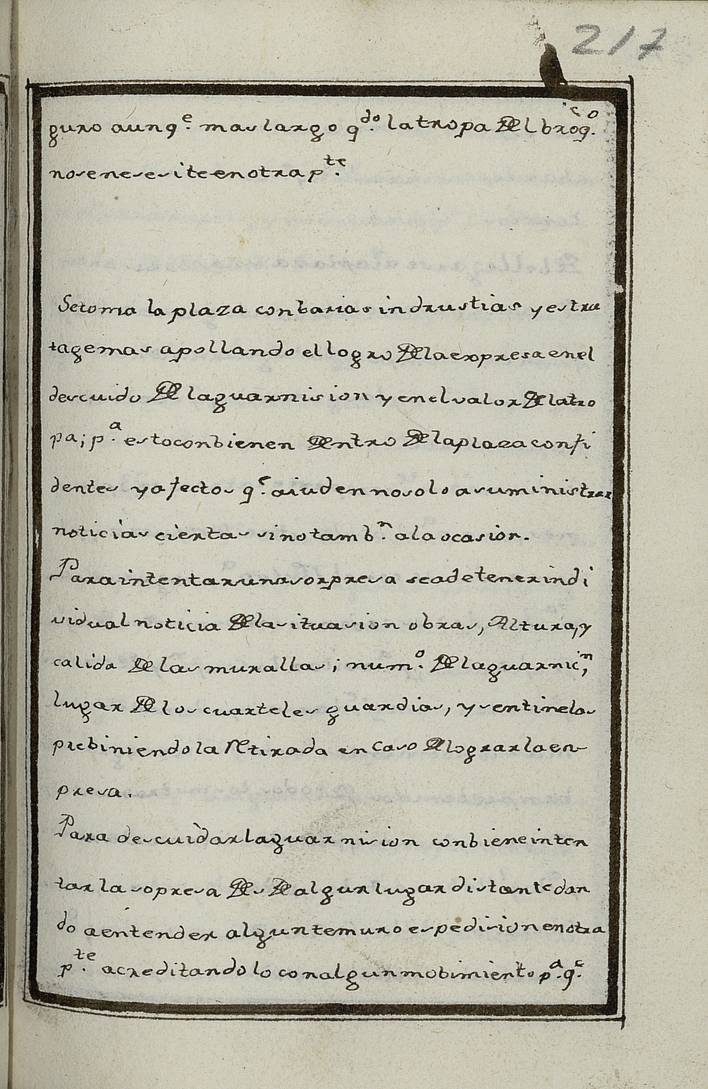 217
guro aunq.e mas largo q.do la tropa del broq.co
no se nesesite en otra p.te
Se toma la plaza con barias indrustias y estra
tagemas apollando el logro de la expresa en el
descuido de la guarnision y en el valor de la tro
pa; p.a esto conbienen dentro de la plaza confi
dentes y afectos q.e aiuden no solo a suministrar
noticias ciertas sino tamb.n a la ocasion.
Para intentar una sorpresa se a de tener indi
vidual noticia de la situasion obras, Altura, y
calida de las murallas; num.o de la guarnic.n,
lugar de los cuarteles guardias, y sentinelas
prebiniendo la Retirada en caso de lograr la en-
presa.
Para descuidar la guarnision conbiene inten
tar la sopresa des de algun lugar distante dan
do a entender algun temuro espedision en otra
p.te acreditandolo con algun mobimiento p.a q.e